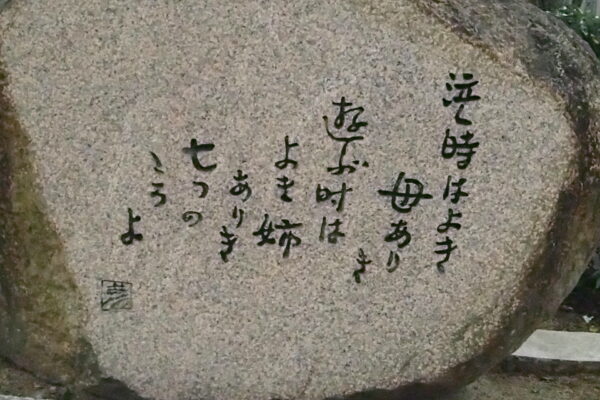 泣く時はよき
母ありき
遊ぶ時は
よき姉
ありき
七つの
ころよ